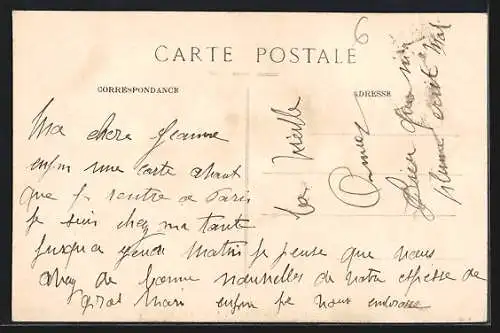 CARTE POSTALE
6
CORRESPONDANCE
ADRESSE
Ma chere Jeanne
enfin une carte avant
que je rentre a Paris
je suis chez ma tante
jusqu'a jeudi matin je pense que vous
avez de bonne nouvelles de votre espesse de
gros Mari enfin je vous embrasse
ta
Amies
Bien
plume ecrit Mal